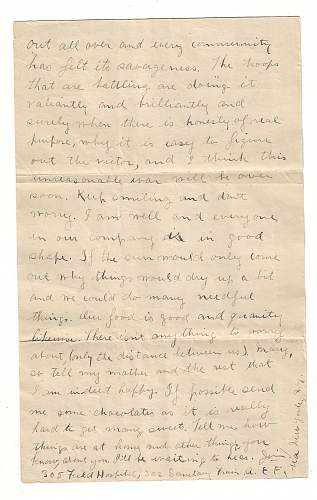 out all over and every community
has felt its savageness. The troops
that are battling are doing it
valiantly and brilliantly and
surely when there is honesty of real
purpose, why it is easy to figure
out the victor, and I think this
unreasonable war will be over
soon. Keep smiling and don't
worry. I am well and everyone
in our company is in good
shape. If the sun would only come
out why things would dry up a bit
and we could do many needful
things. Our food is good and quantity
likewise. There isn't anything to worry
about (only the distance between us) Mary,
so tell my mother and the rest that
I am indeed happy. If possible send
me some chocolates as it is really
hard to get many sweets. Tell me how
things are at home and other things you
know about you. I'll be waiting to hear.
305 Field Hospital, 302 Sanitary Train, A. E. F.,
via New York, N.Y.